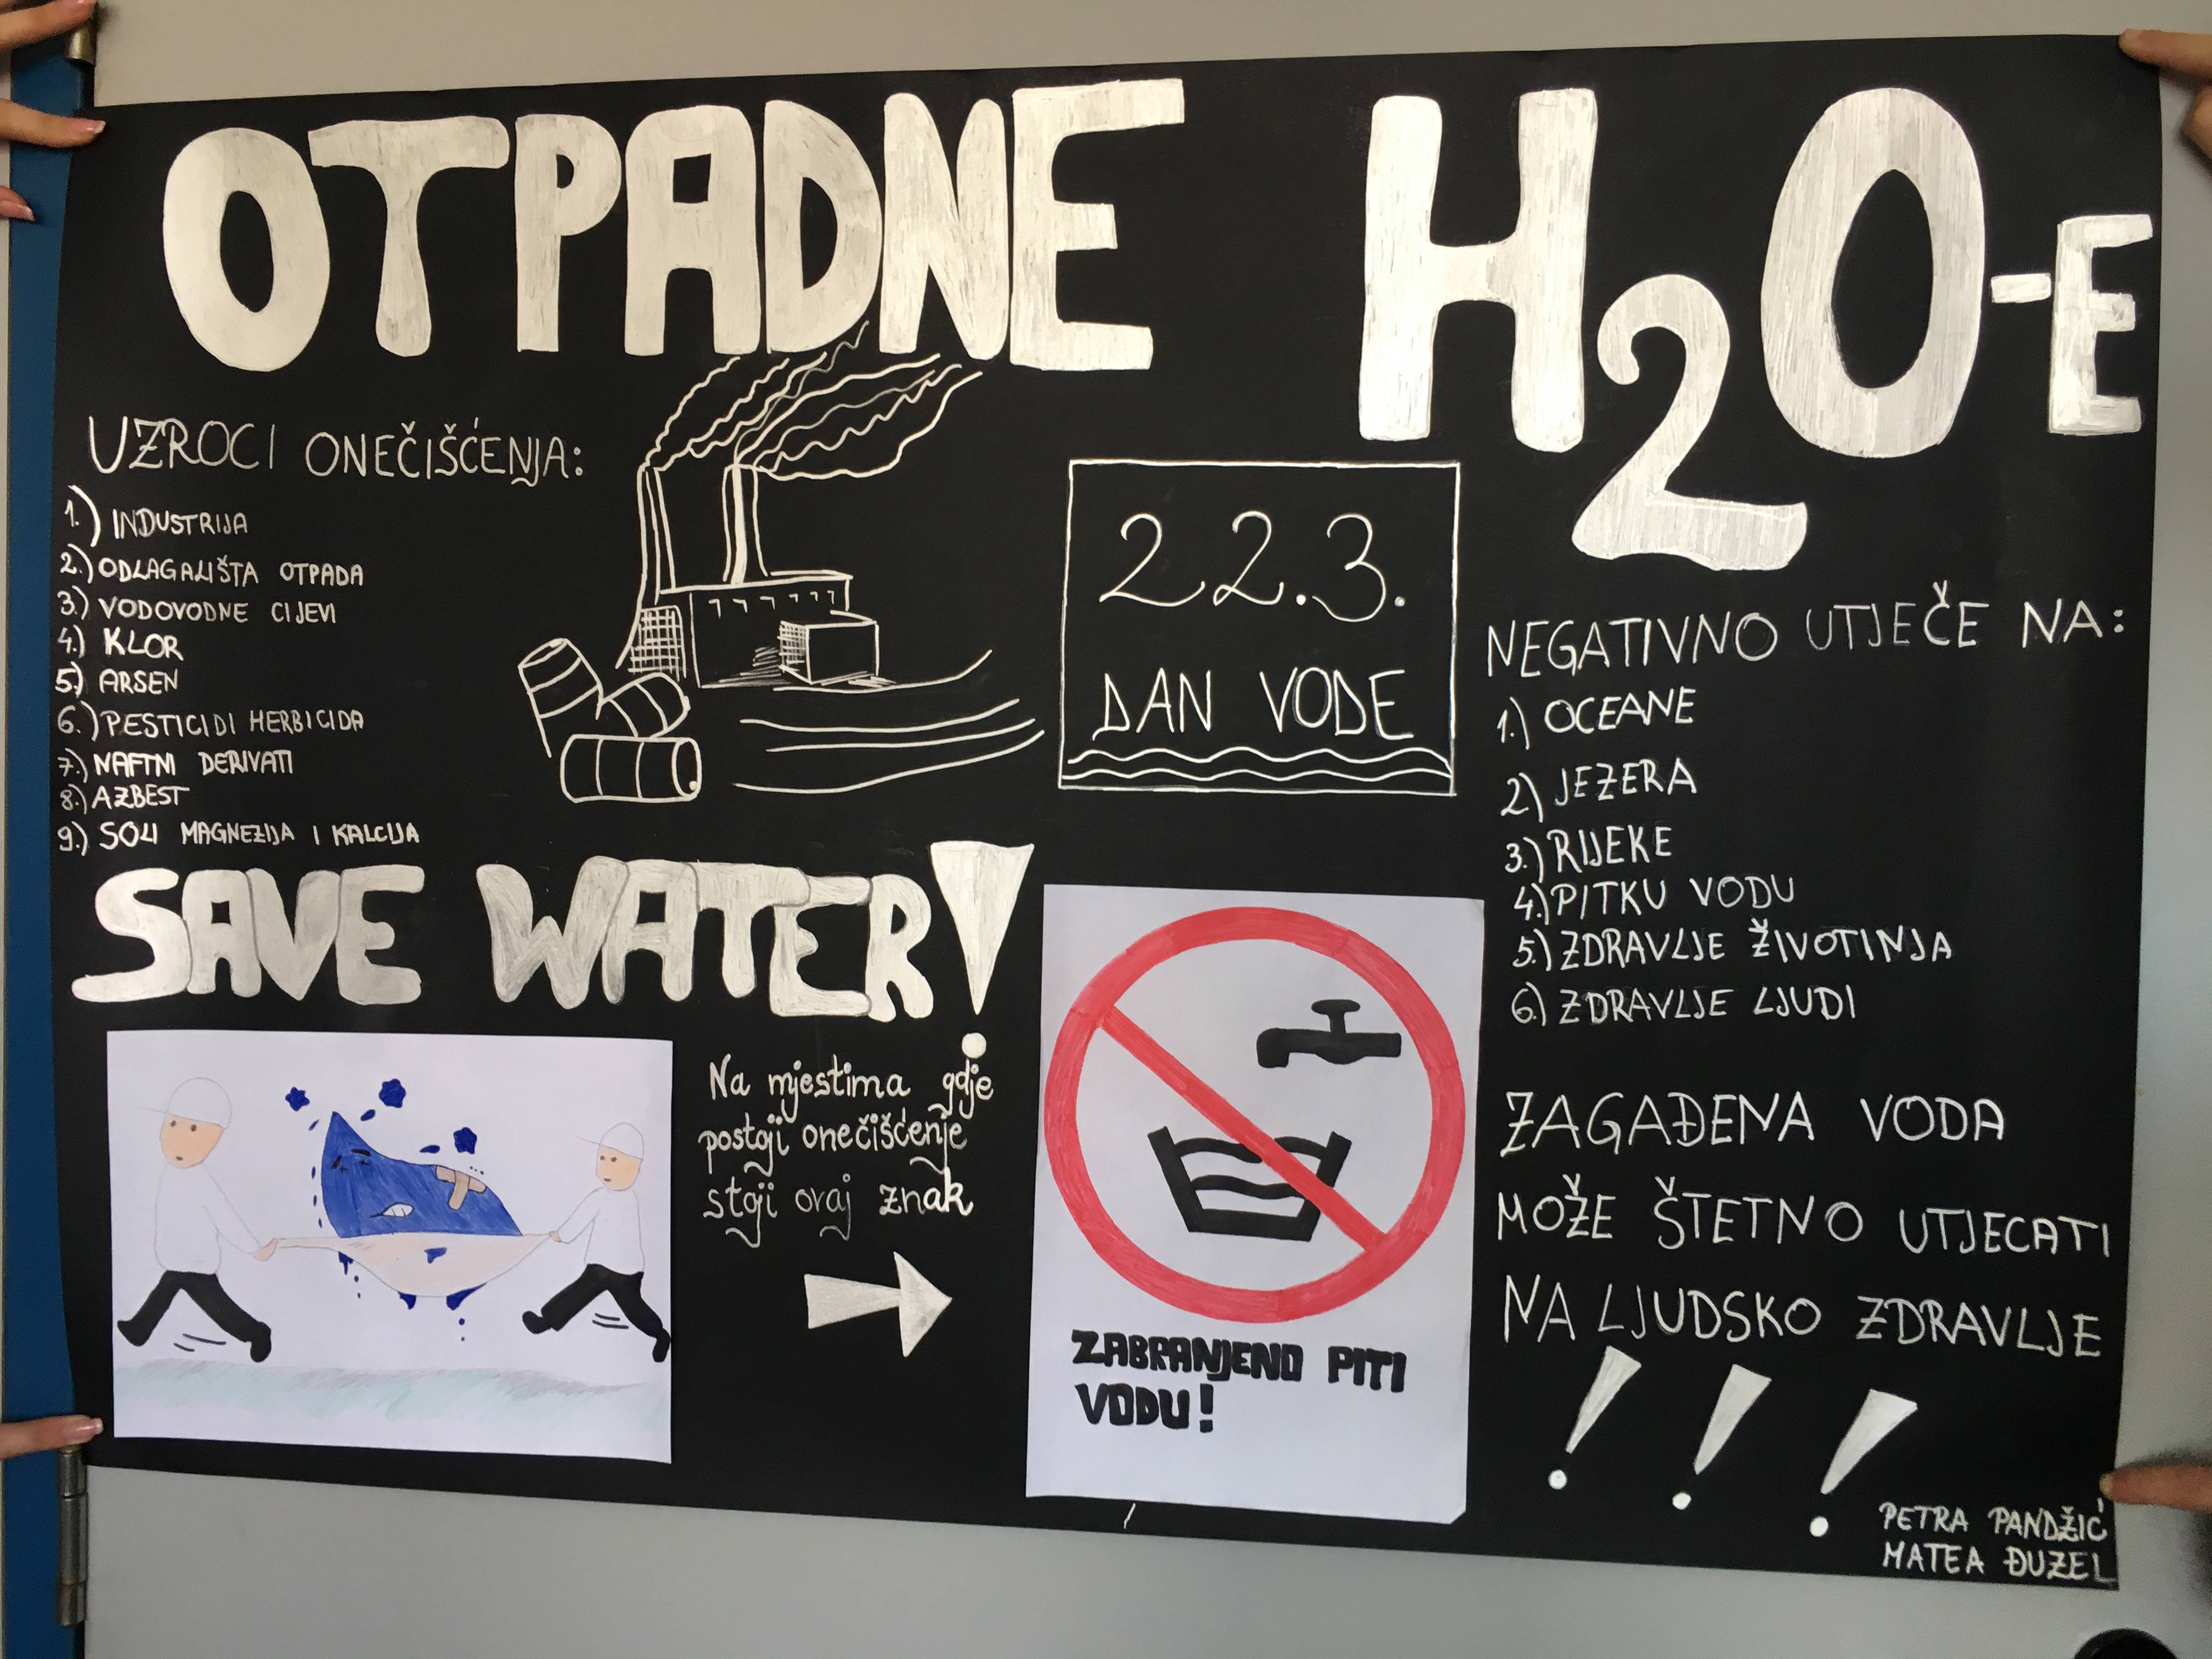 OTPADNE H2O-E
UZROCI ONEČIŠĆENJA:
1.) INDUSTRIJA
2.) ODLAGALIŠTA OTPADA
3.) VODOVODNE CIJEVI
4.) KLOR
5.) ARSEN
6.) PESTICIDI HERBICIDA
7.) NAFTNI DERIVATI
8.) AZBEST
9.) SOLI MAGNEZIJA I KALCIJA
22.3.
DAN VODE
NEGATIVNO UTJEČE NA:
1.) OCEANE
2.) JEZERA
3.) RIJEKE
4.) PITKU VODU
5.) ZDRAVLJE ŽIVOTINJA
6.) ZDRAVLJE LJUDI
SAVE WATER!
Na mjestima gdje
postoji onečišćenje
stoji ovaj znak
ZABRANJENO PITI
VODU!
ZAGAĐENA VODA
MOŽE ŠTETNO UTJECATI
NA LJUDSKO ZDRAVLJE
!!!
PETRA PANDŽIĆ
MATEA ĐUZEL